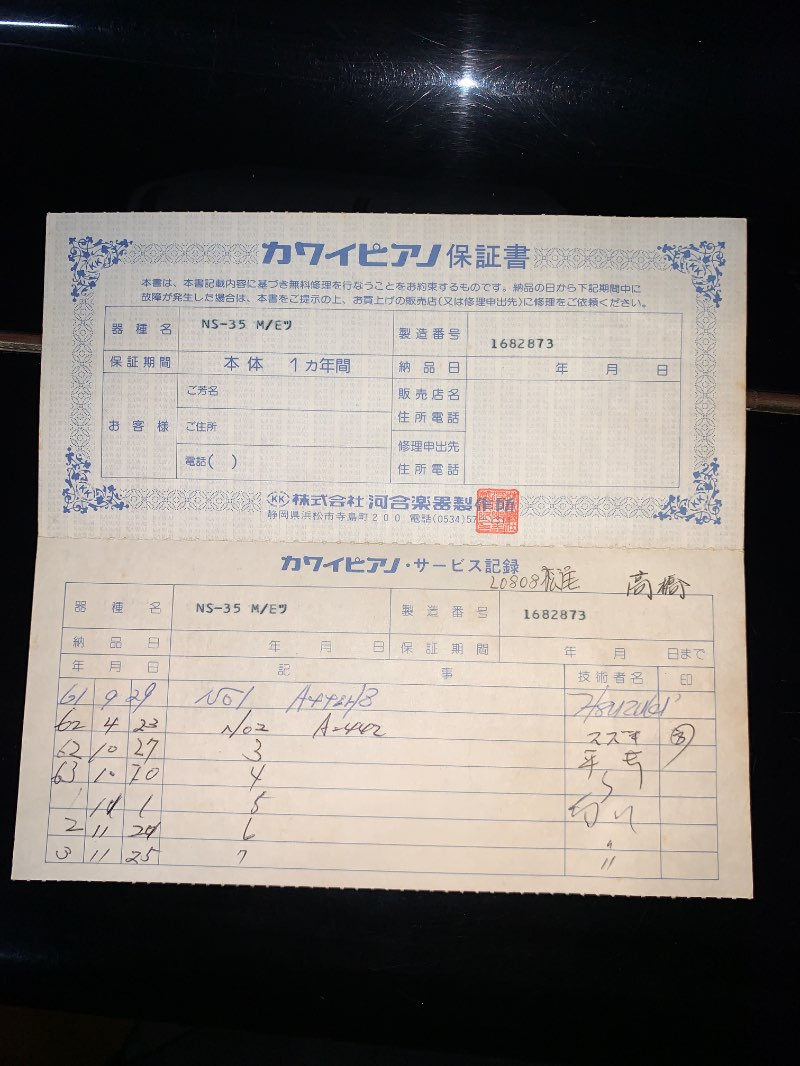 カワイピアノ 保証書
本書は、本書記載内容に基づき無料修理を行なうことをお約束するものです。納品の日から下記期間中に
故障が発生した場合は、本書をご提示の上、お買上げの販売店(又は修理申出先)に修理をご依頼ください。
器種名 NS-35 M/Eツ 製造番号 1682873
保証期間 本体 1ヵ年間 納品日 年 月 日
お客様 ご芳名 販売店名
ご住所 住所電話
修理申出先
電話( ) 住所電話
KK 株式会社 河合楽器製作所
静岡県浜松市寺島町200 電話(0534)57
カワイピアノ・サービス記録
高橋
器種名 NS-35 M/Eツ 製造番号 1682873
納品日 年 月 日 保証期間 年 月 日まで
年 月 日 記事 技術者名 印
61 9 29 No1
62 4 23 No2 A=442 スズキ
62 10 27 3
63 10 4
1 11 1 5
2 11 6
3 11 25 7 〃